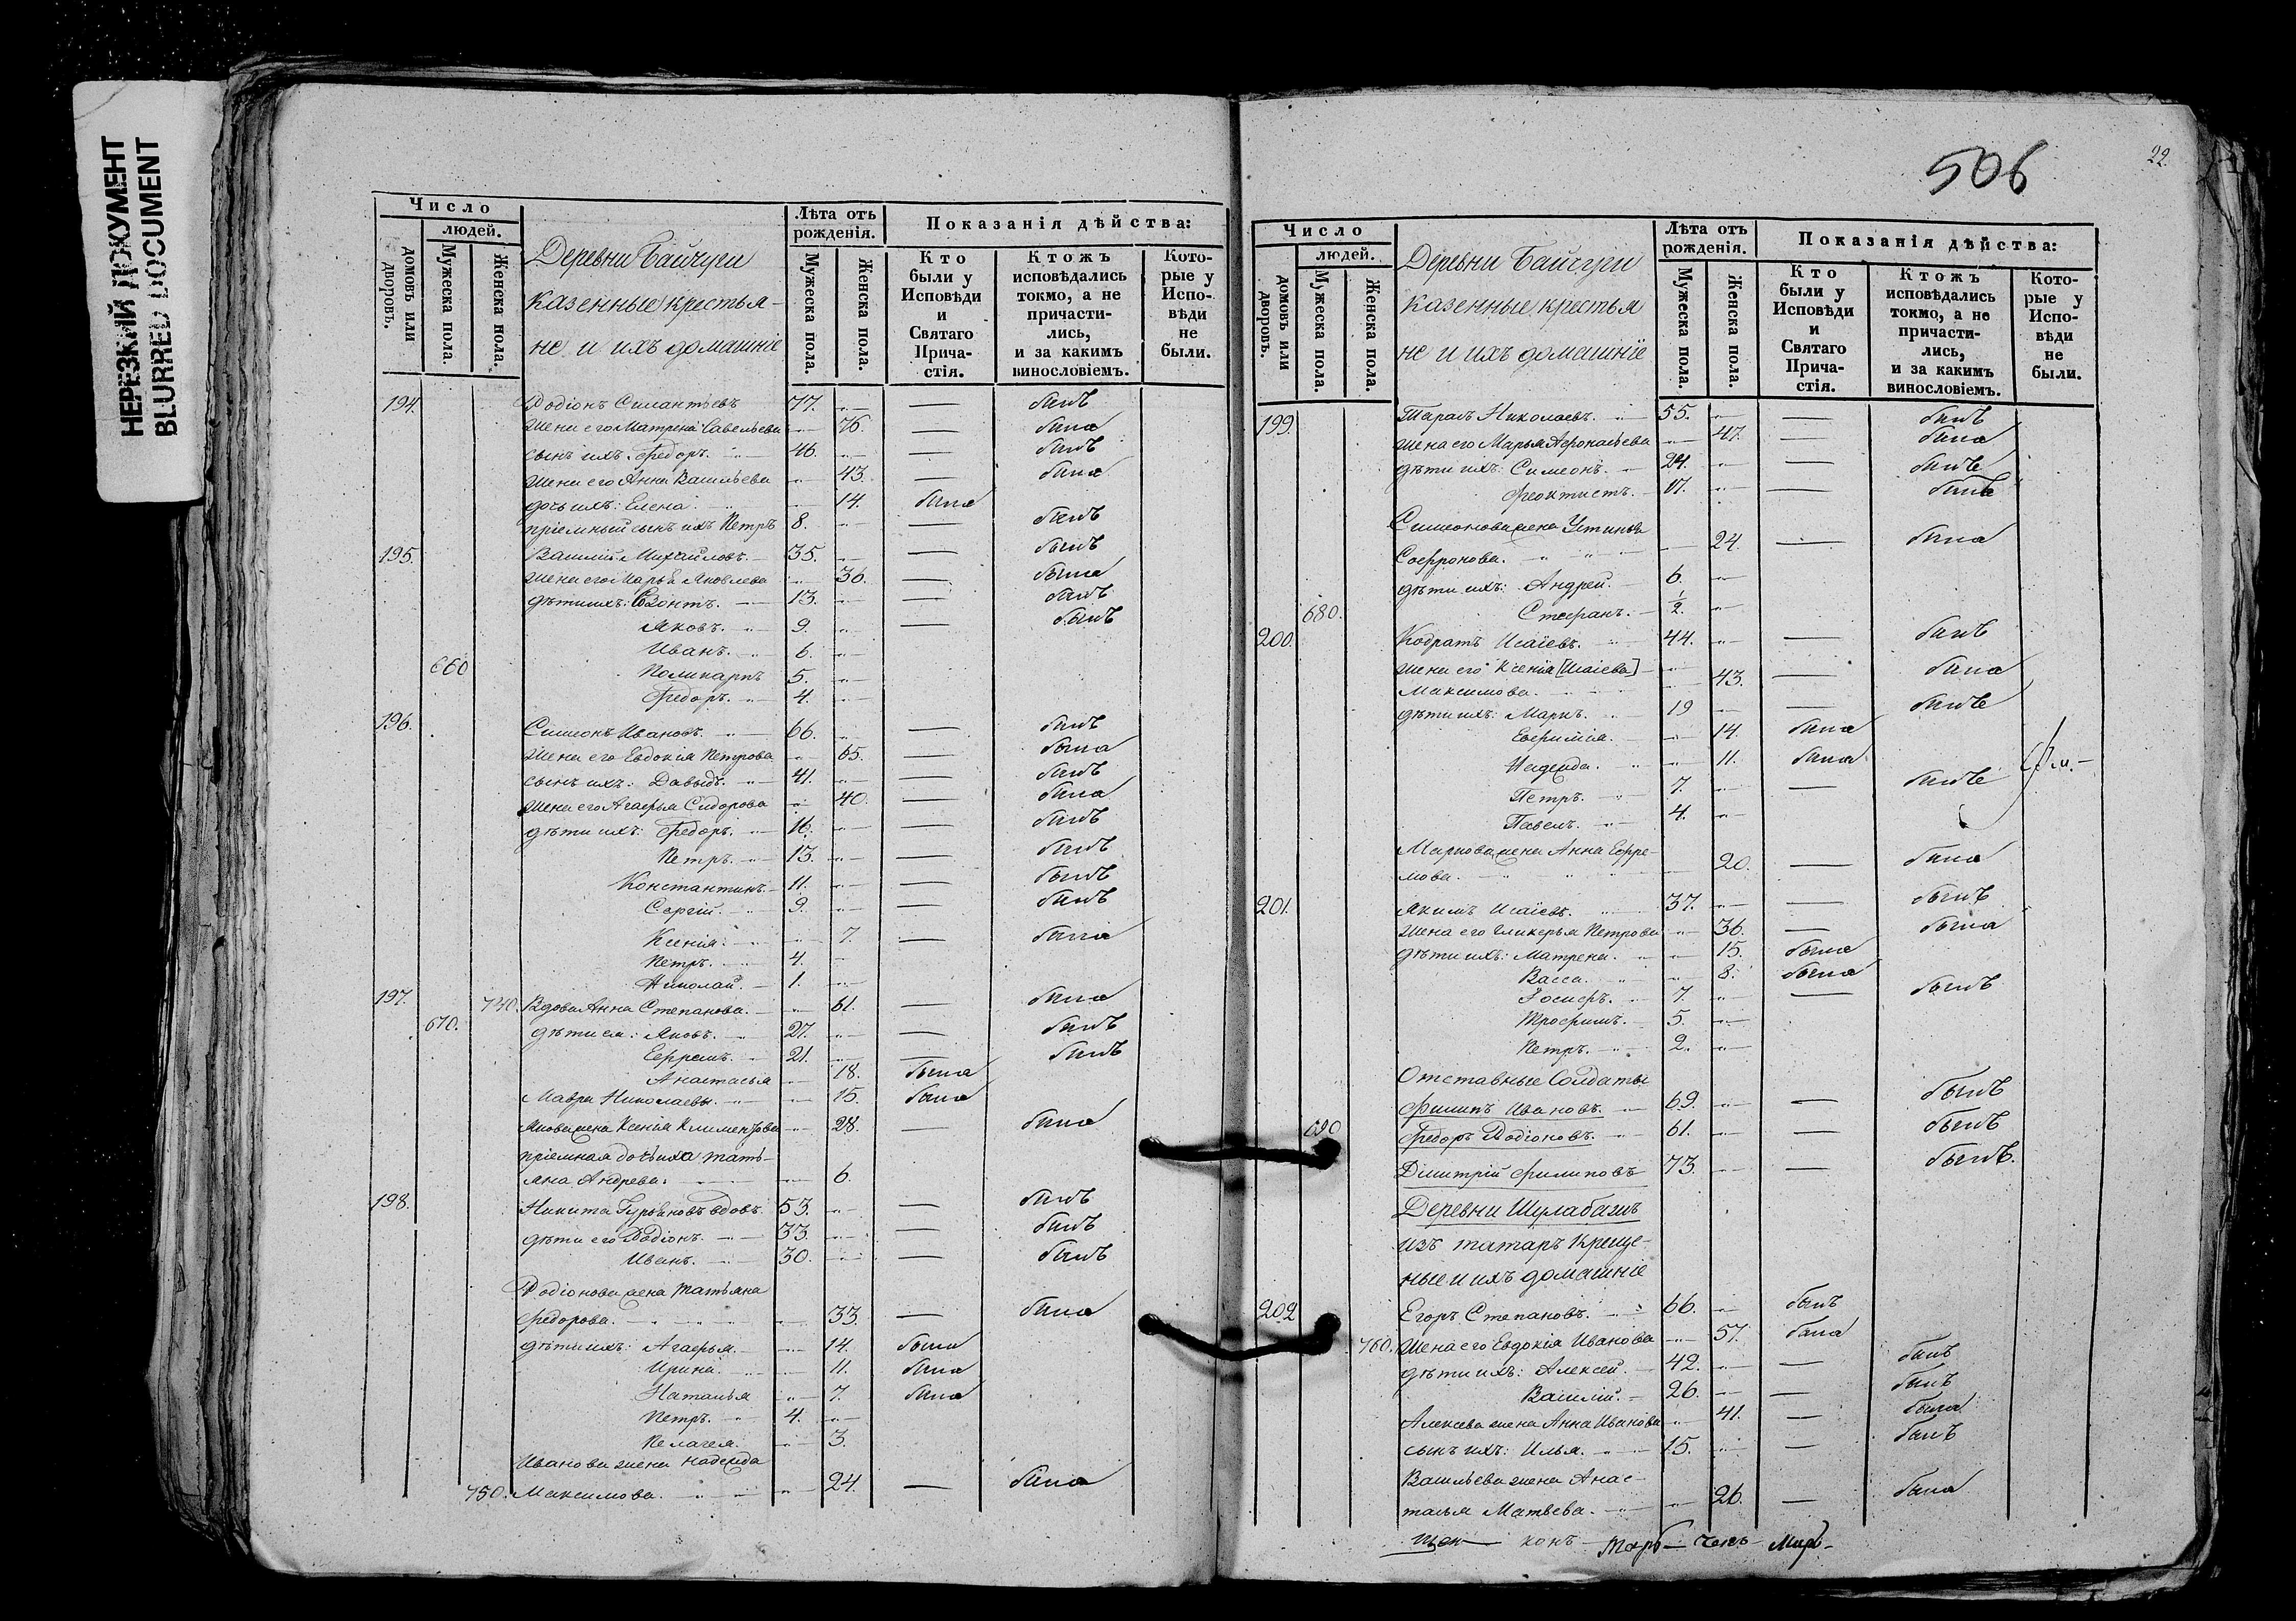 НЕРЕЗКИЙ ДОКУМЕНТ
BLURRED DOCUMENT
Число
людей.
домовъ или дворовъ.
Мужеска пола.
Женска пола.
Деревни Байчуги
казенные крестья-
не и ихъ домашніе
Лѣта отъ рожденія.
Мужеска пола.
Женска пола.
Показанія дѣйства:
Кто были у Исповѣди и Святаго Прича-стія.
Ктожъ исповѣдались токмо, а не причасти-лись, и за какимъ винословіемъ.
Кото-рые у Испо-вѣди не были.
194. Родіонъ Силантьевъ 77. — былъ
жена его Матрена Савельева 76. — была
сынъ ихъ Федоръ. 46. — былъ
жена его Анна Васильева 43. — была
дочь ихъ: Елена. 14. была
пріемный сынъ ихъ Петръ 8. — былъ
195. Василій Михайловъ. 35. — былъ
жена его Марья Яковлева 36. — была
дѣти ихъ: Созонтъ. 13. — былъ
Яковъ. 9. — былъ
Иванъ. 6.
660 Поликарпъ 5.
Федоръ. 4.
196. Симеонъ Ивановъ. 66. — былъ
жена его Евдокія Петрова 65. — была
сынъ ихъ: Давыдъ. 41. — былъ
жена его Агафья Сидорова 40. — была
дѣти ихъ: Федоръ. 16. — былъ
Петръ. 13. — былъ
Константинъ. 11. — былъ
Сергій. 9. — былъ
Ксенія. 7. — была
Петръ. 4.
Николай. 1.
197. 740. Вдова Анна Степанова. 61. — была
670. дѣти ея: Яковъ. 27. — былъ
Ефремъ. 21. — былъ
Анастасья 18. была
Мавра Николаевы. 15. была
Яковa жена Ксенія Климентова 28. — была
пріемная дочь ихъ Тать-
яна Андрева. 6.
198. Никита Гурьяновъ вдовъ. 53. — былъ
дѣти его Родіонъ. 33. — былъ
Иванъ. 30. — былъ
Родіонова жена Татьяна
Федорова. 33. — была
дѣти ихъ: Агафья. 14. была
Ирина. 11. была
Наталья 7. была
Петръ. 4.
Пелагея. 3.
Иванова жена Надежда
750. Максимова. 24. — была
506
22.
Число
людей.
домовъ или дворовъ.
Мужеска пола.
Женска пола.
Деревни Байчуги
казенные крестья
не и ихъ домашніе
Лѣта отъ рожденія.
Мужеска пола.
Женска пола.
Показанія дѣйства:
Кто были у Исповѣди и Святаго Прича-стія.
Ктожъ исповѣдались токмо, а не причасти-лись, и за какимъ винословіемъ.
Кото-рые у Испо-вѣди не были.
199. Тарасъ Николаевъ. 55. — былъ
жена его Марья Афонасьева 47. — была
дѣти ихъ: Симеонъ. 24. — былъ
Феоктистъ. 17. — былъ
Симеонова жена Устинья
Софронова. 24. — была
дѣти ихъ: Андрей. 6.
680. Стефанъ. 1/2.
200. Кодратъ Исаіевъ. 44. — былъ
жена его Ксенія [Исаіева]
Максимова. 43. — была
дѣти ихъ: Маркъ. 19 — былъ
Евфимія. 14. была
Надежда. 11. была
Петръ. 7. — былъ
Павелъ. 4.
Маркова жена Анна Ефре-
мова. 20. — была
201. Якимъ Исаіевъ. 37. — былъ
жена его Гликерья Петрова 36. — была
дѣти ихъ: Матрена. 15. была
Васса. 8. была
Іосифъ. 7. — былъ
Трофимъ. 5.
Петръ. 2.
Отставные Солдаты
Филипъ Ивановъ. 69. — былъ
690 Федоръ Родіоновъ. 61. — былъ
Дмитрій Филиповъ 73. — былъ.
Деревни Шулабашъ
изъ татаръ креще-
ные и ихъ домашніе
202 Егоръ Степановъ. 66. былъ
760. Жена его Евдокія Иванова 57. была
дѣти ихъ: Алексей. 42. — былъ
Василій. 26. — былъ
Алексеева жена Анна Иванова 41. — была
сынъ ихъ: Илья. 15. — былъ
Васильева жена Анас-
тасья Матвева. 26. — была